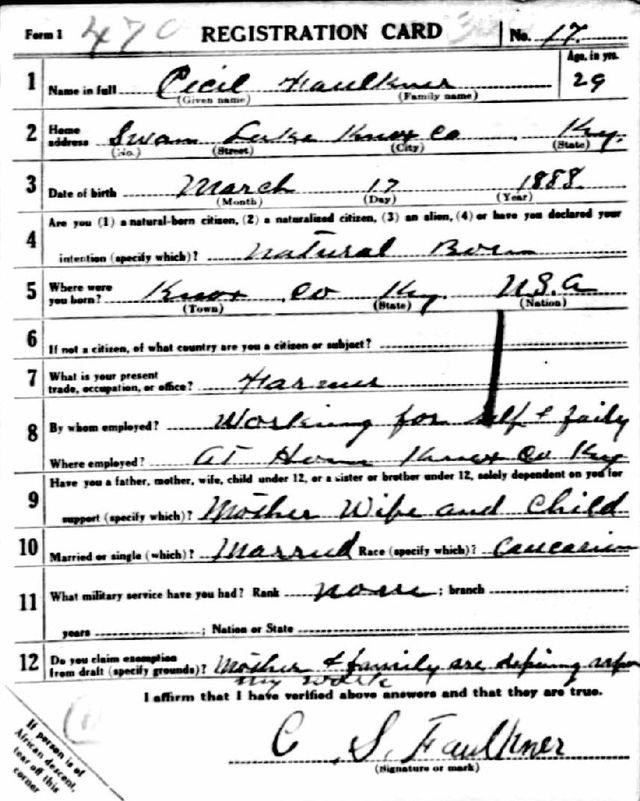 Form 1 470 REGISTRATION CARD No. 17
Age, in yrs.
1 Name in full Cecil Faulkner 29
(Given name) (Family name)
2 Home address Swan Lake Knox Co Ky.
(No.) (Street) (City) (State)
3 Date of birth March 17 1888
(Month) (Day) (Year)
Are you (1) a natural-born citizen, (2) a naturalized citizen, (3) an alien, (4) or have you declared your
4 intention (specify which)? Natural Born
5 Where were you born? Knox Co Ky. U.S.A
(Town) (State) (Nation)
6 If not a citizen, of what country are you a citizen or subject?
7 What is your present trade, occupation, or office? Farmer
8 By whom employed? Working for self &
Where employed? At Home Knox Co Ky
Have you a father, mother, wife, child under 12, or a sister or brother under 12, solely dependent on you for
9 support (specify which)? Mother Wife and Child
10 Married or single (which)? Married Race (specify which)? Caucasian
11 What military service have you had? Rank none ; branch ;
years ; Nation or State
12 Do you claim exemption from draft (specify grounds)? Mother & family are
my work
I affirm that I have verified above answers and that they are true.
If person is of
African descent,
tear off this
corner
C. S. Faulkner
(Signature or mark)